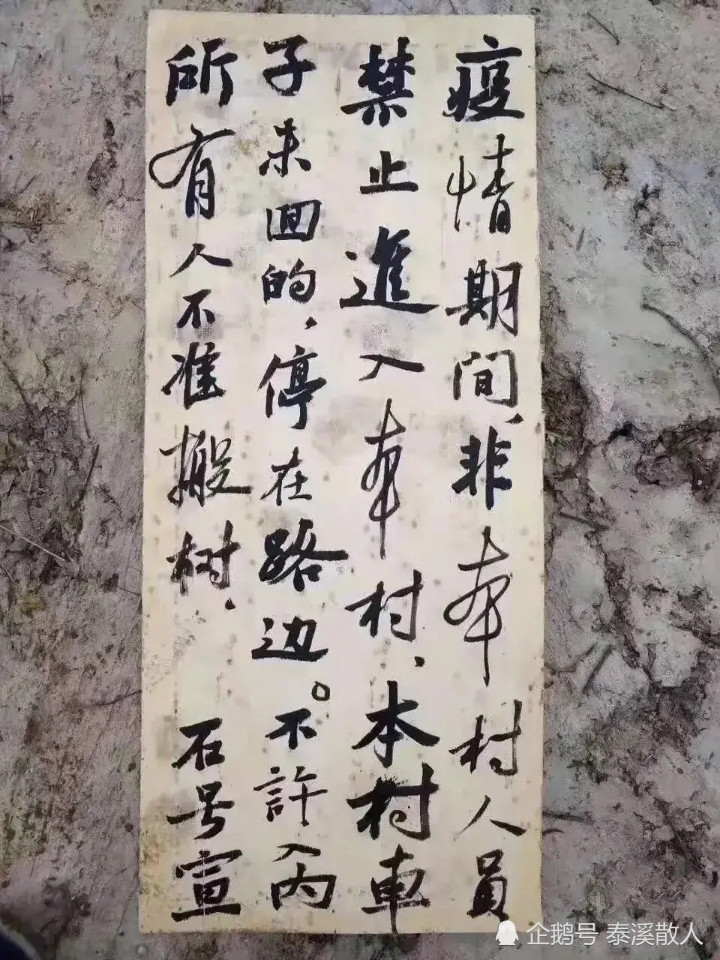 疫情期间、非本村人員
禁止進入本村、本村車
子未回的，停在路边。不許入内
所有人不准搬树．
石号宣
企鹅号 泰溪散人